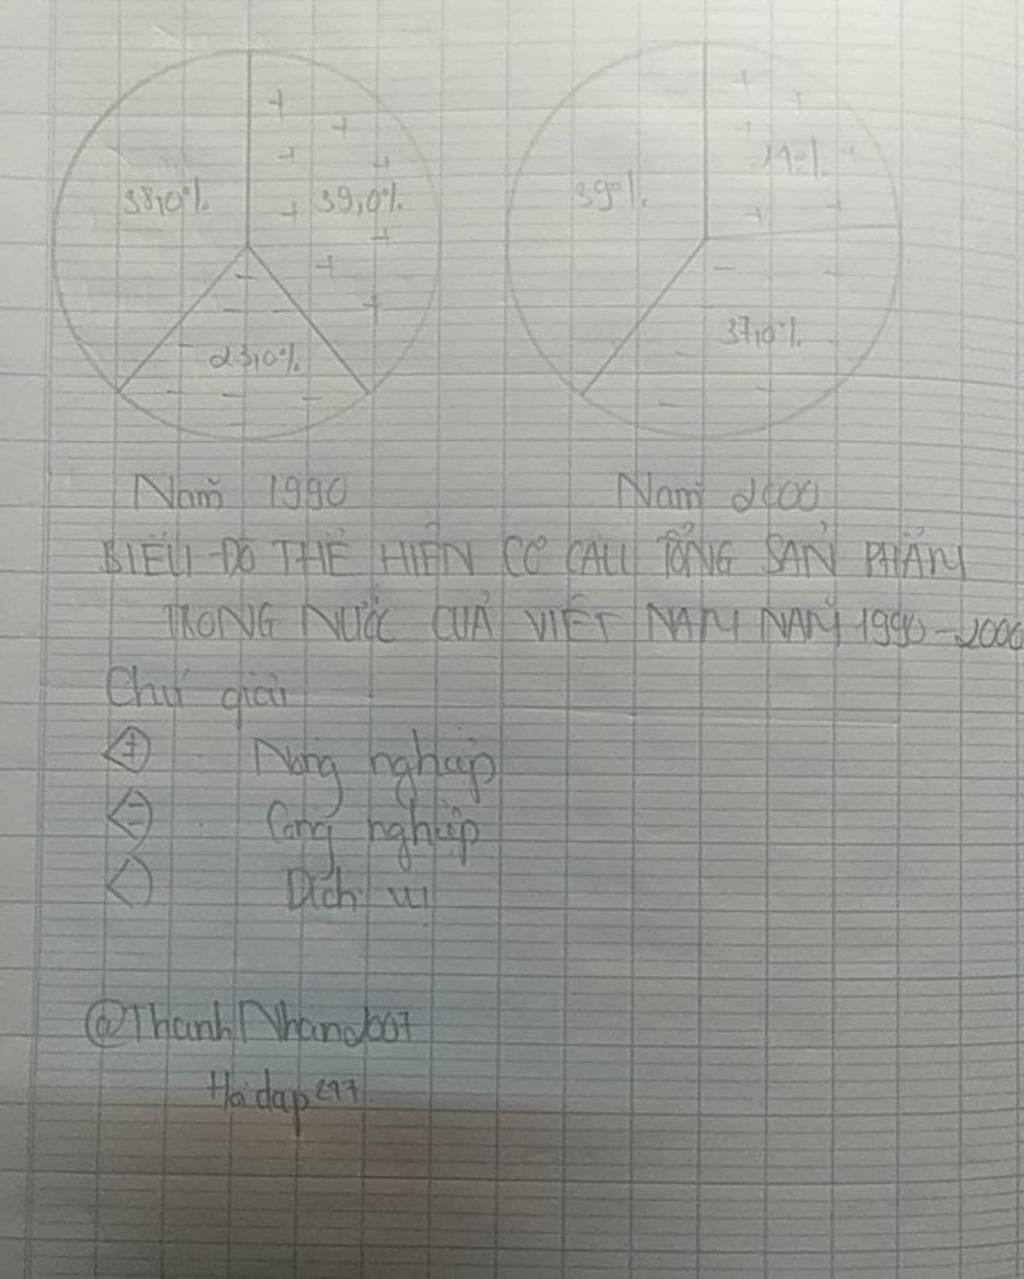 38,0% 39,0% 23,0%
39% 24% 37,0%
Năm 1990 Năm 2000
BIỂU ĐỒ THỂ HIỆN CƠ CẤU TỔNG SẢN PHẨM
TRONG NƯỚC CỦA VIỆT NAM NĂM 1990-2000
Chú giải
Nông nghiệp
Công nghiệp
Dịch vụ
@ThanhNhan2007
Hoidap247